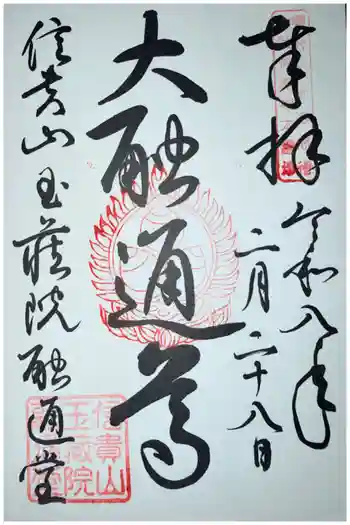 奉拝
令和八年
二月二十八日
大融通尊
信貴山玉蔵院融通堂
信貴山
玉蔵院